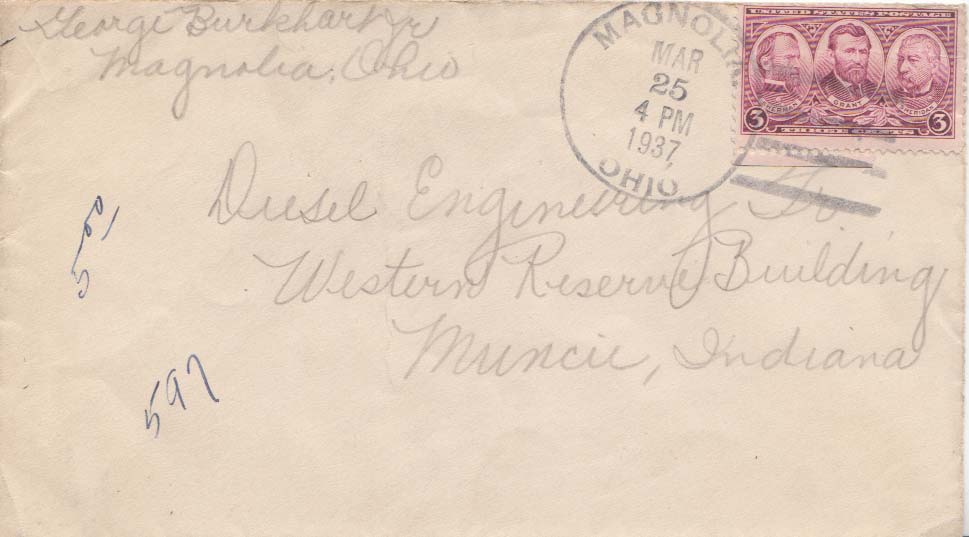 George Burkhart Jr
Magnolia, Ohio
MAGNOLIA
MAR
25
4 PM
1937
OHIO
UNITED STATES POSTAGE
SHERMAN GRANT SHERIDAN
3 THREE CENTS 3
Diesel Engineering
Western Reserve Building
Muncie, Indiana
597